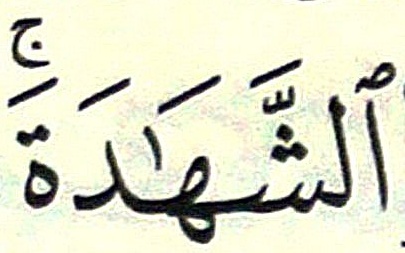 ٱلشَّهَٰدَةَۚ